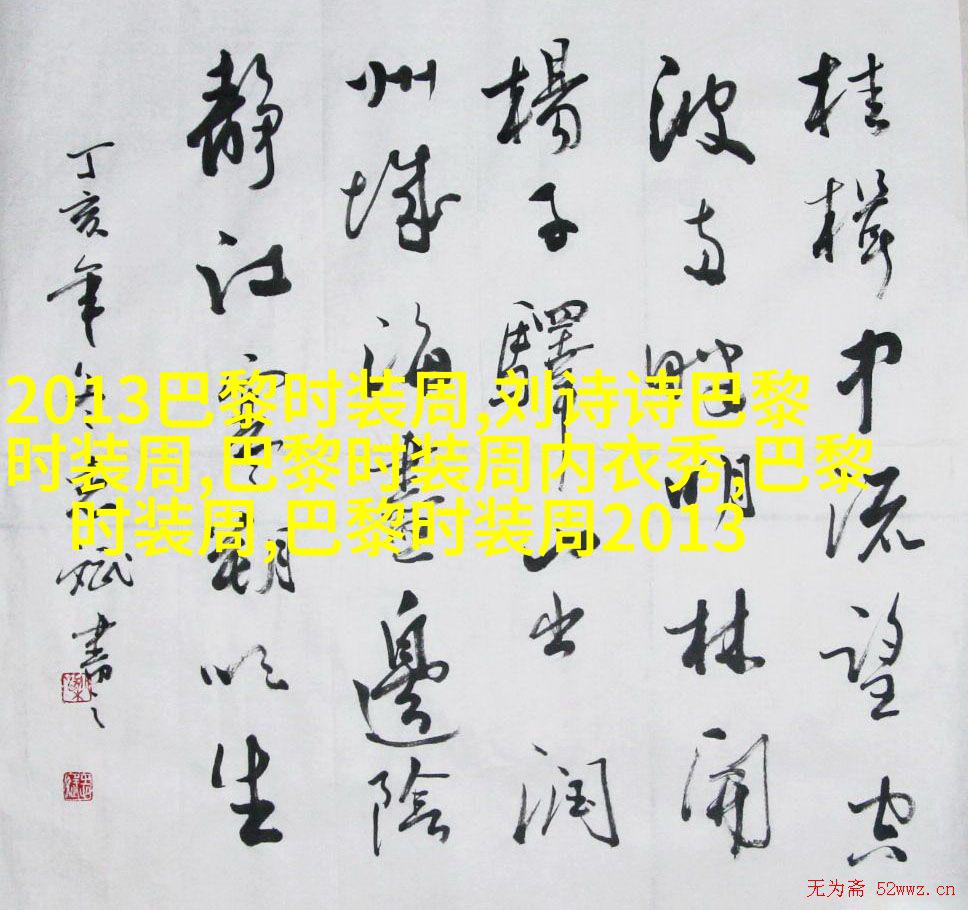 桂楫中流望空
波两畔明林開
楊子驛山出润
州城海盡邊陰
静江寒朔吹生
丁亥年冬斌書
2013巴黎时装周,刘诗诗巴黎
时装周,巴黎时装周内衣秀,巴黎
时装周,巴黎时装周2013
无为斋 52wwz.cn